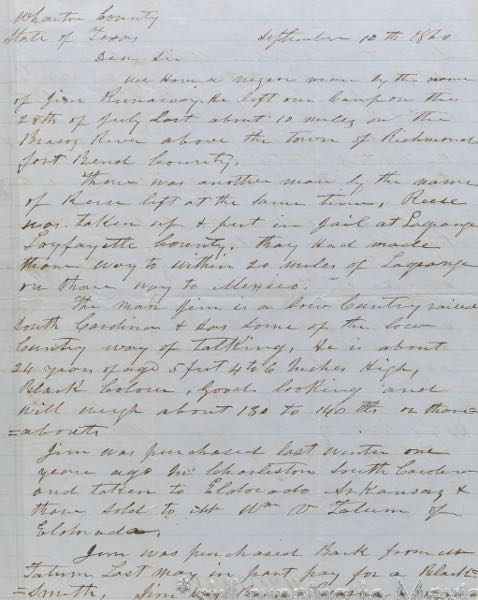 Wharton County
State of Texas September 10th 18
Dear Sir
We have a negro man by the name
of Jim Runaway. He left our Camp on the
28th of July Last about 10 miles on the
Brasos River above the town of Richmond
Fort Bend County.
There was another man by the name
of Reese left at the same time, Reese
was taken up & put in jail at Lagrange
Loyfayette County. thay had made
thare way to within 20 miles of Lagrange
on thare way to Mexico.
The man Jim is a Low Cuntry raised
South Carolina & has some of the Low
Cuntry way of talking, He is about
24 years of age 5 feet 4 to 6 Inches High,
Black Colour, Good looking and
will weigh about 130 to 140 lbs or thare=
=abouts
Jim was purchased last winter one
years ago in Charleston South Carolina
and taken to Eldorado Arkansas &
thare sold to Wm V Tatum of
Eldorado.
Jim was purchased Back from
Tatum Last May in part pay for a Black=
=Smith, Jim